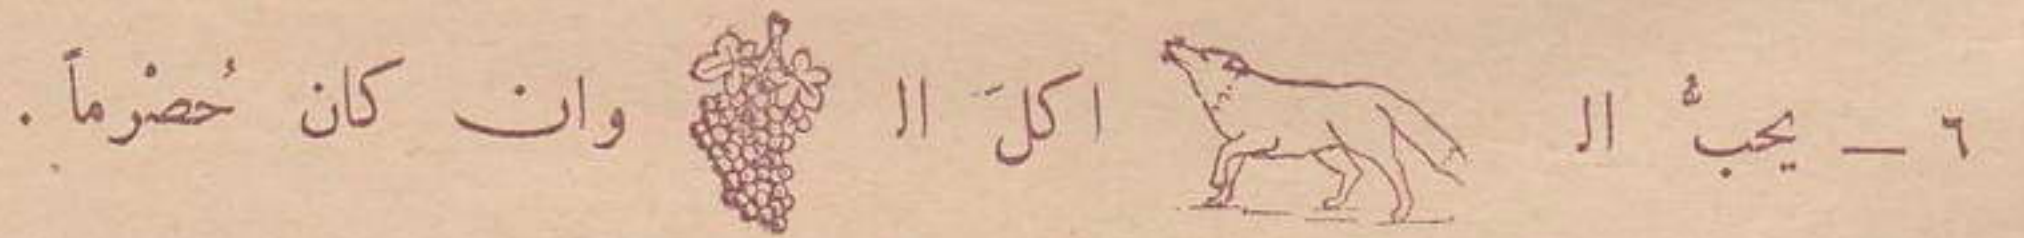 ٦ – يحبُّ الـ اكلَ الـ وان كان حُصْرماً .